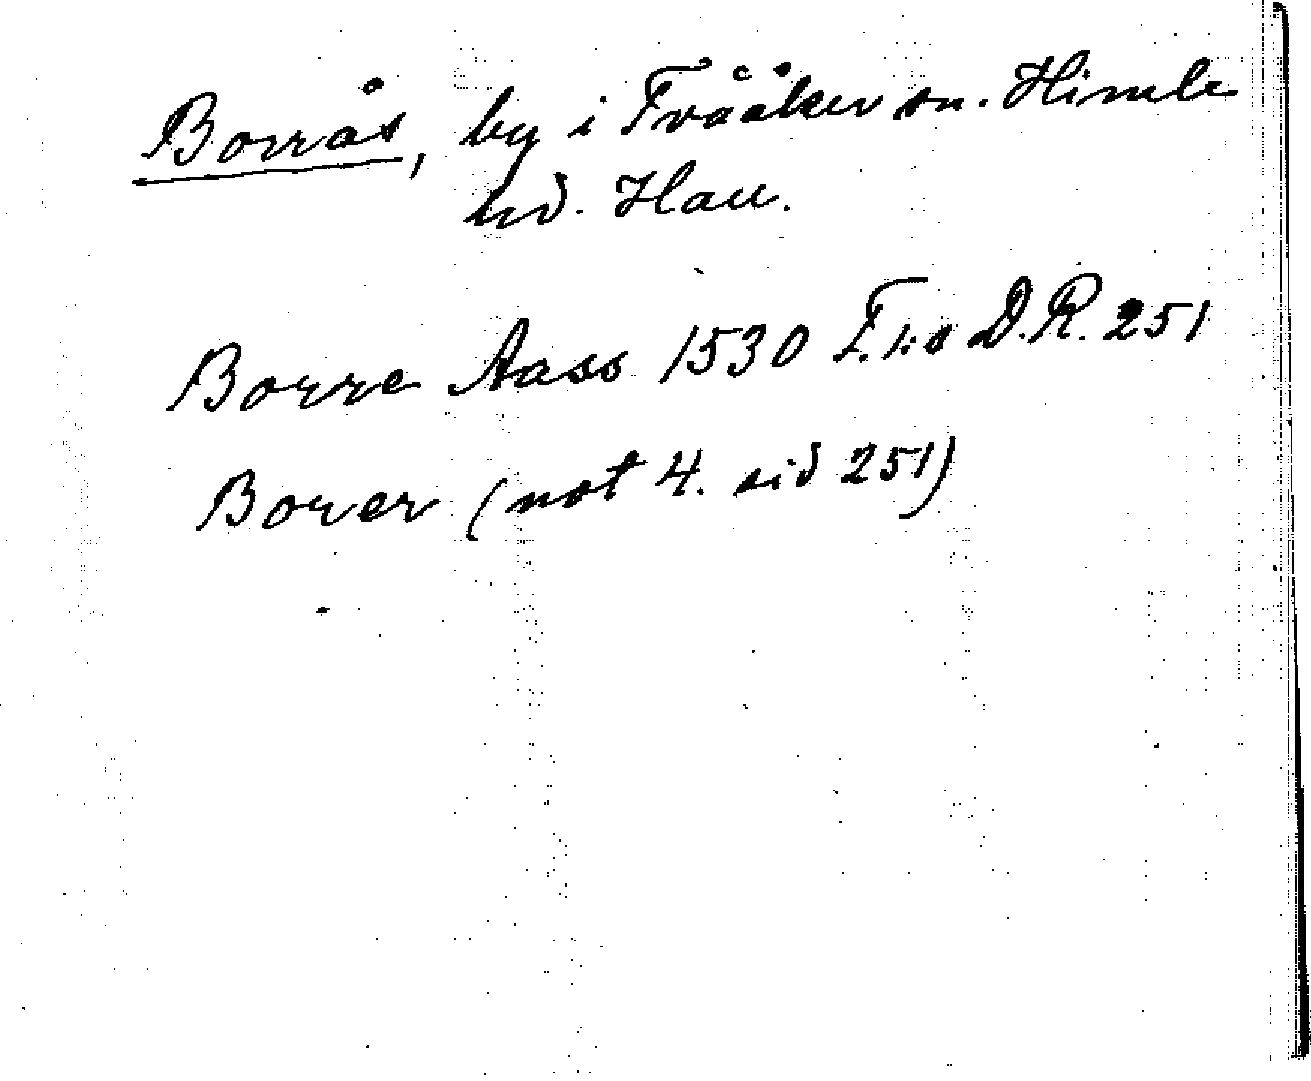 Borrås, by i Tvååker sn. Himle
hd. Hall.
Borre Aass 1530 F.1:s D.R. 251
Borer (not 4. sid 251)